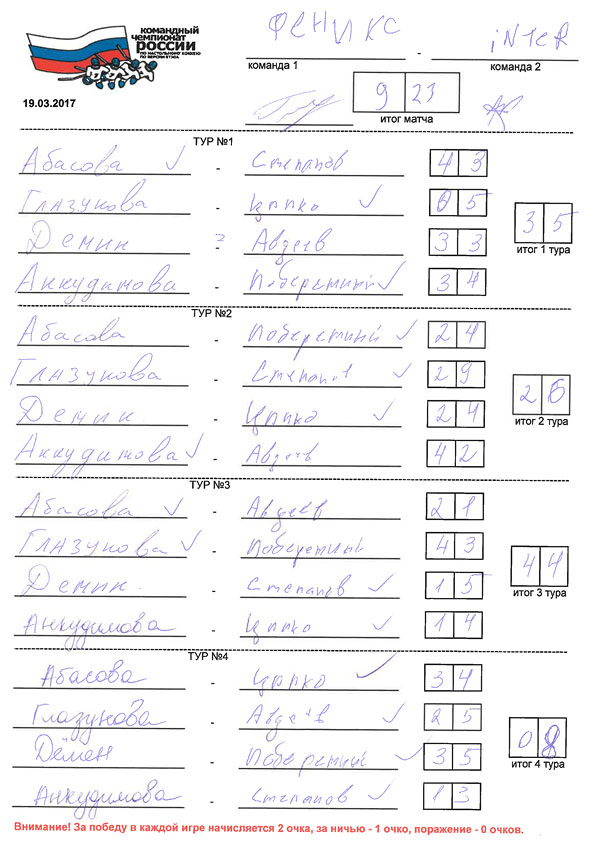 КОМАНДНЫЙ
ЧЕМПИОНАТ
РОССИИ
ПО НАСТОЛЬНОМУ ХОККЕЮ
19.03.2017
ФЕНИКС - iNTER
команда 1 команда 2
9 23
итог матча
ТУР №1
Абасова ✓ - Степанов 4 3
Глазунова - Цапко ✓ 0 5
Демин - Авдеев 3 3
Анкудимова - Поберетний ✓ 3 4
3 5
итог 1 тура
ТУР №2
Абасова - Поберетний ✓ 2 4
Глазунова - Степанов ✓ 2 9
Демин - Цапко ✓ 2 4
Анкудимова ✓ - Авдеев 4 2
2 6
итог 2 тура
ТУР №3
Абасова ✓ - Авдеев 2 1
Глазунова ✓ - Поберетний 4 3
Демин - Степанов ✓ 1 5
Анкудимова - Цапко ✓ 1 4
4 4
итог 3 тура
ТУР №4
Абасова - Цапко ✓ 3 4
Глазунова - Авдеев ✓ 2 5
Дёмен - Поберетний ✓ 3 5
Анкудимова - Степанов ✓ 1 3
0 8
итог 4 тура
Внимание! За победу в каждой игре начисляется 2 очка, за ничью - 1 очко, поражение - 0 очков.